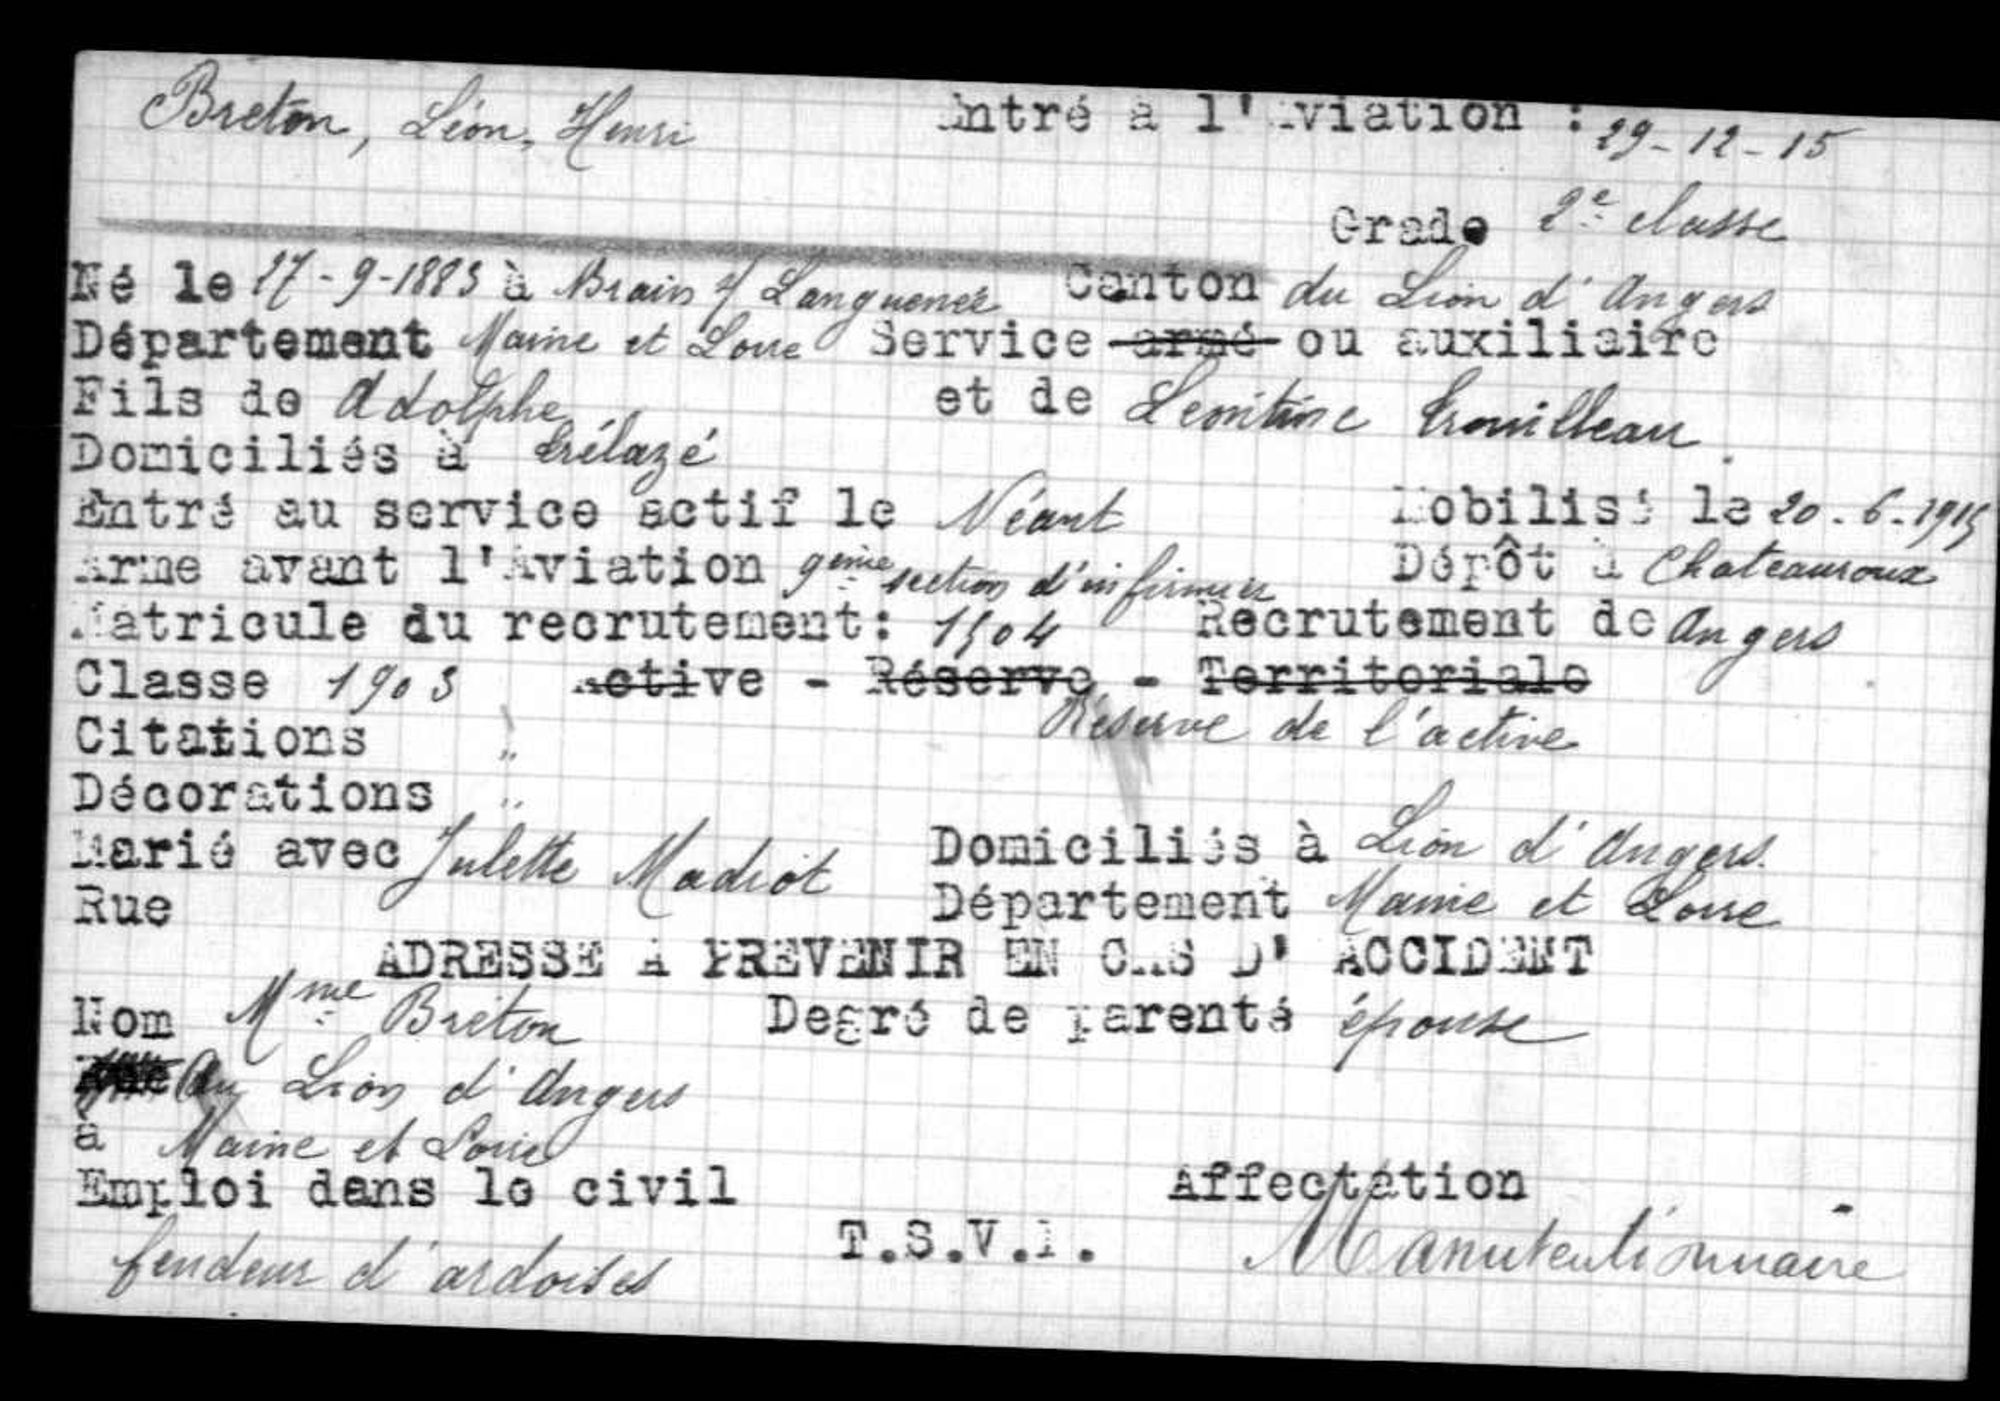 Breton, Léon, Henri Entré à l'Aviation : 29-12-15
Grade 2e classe
Né le 27-9-1883 à Brain s/ Longuenée Canton du Lion d'Angers
Département Maine et Loire Service armé ou auxiliaire
Fils de Adolphe et de Trouilleau
Domiciliés à Trélazé
Entré au service actif le Néant Mobilisé le 20-6-1915
Arme avant l'Aviation 9eme section d'infirmier Dépôt à Chateauroux
Matricule du recrutement: 1504 Recrutement de Angers
Classe 1903 Active - Réserve - Territoriale
Réserve de l'active
Citations "
Décorations "
Marié avec Julette Madiot Domiciliés à Lion d'Angers.
Rue Département Maine et Loire
ADRESSE A PREVENIR EN CAS D' ACCIDENT
Nom Mme Breton Degré de parenté épouse
Rue Au Lion d'Angers
à Maine et Loire
Emploi dans le civil Affectation
fendeur d'ardoises T.S.V.P. Manutentionnaire